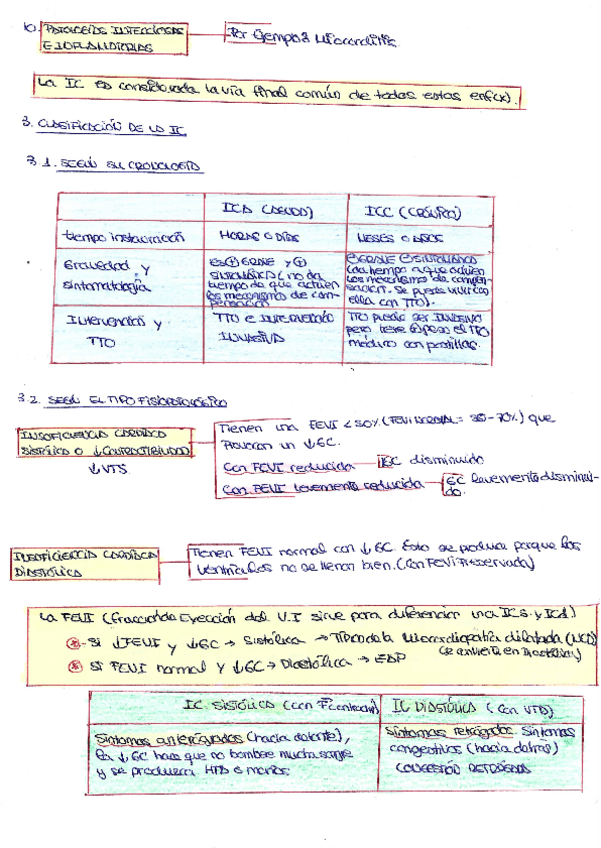 10. PATOLOGÍAS INFECCIOSAS
E INFLAMATORIAS
Por ejemplo: Miocarditis
La IC es considerada la vía final común de todas estas enf(x).
3. CLASIFICACIÓN DE LA IC
3.1. SEGÚN SU CRONOLOGÍA
ICA (AGUDA)
ICC (CRÓNICA)
tiempo instauración
HORAS O DÍAS
MESES O AÑOS
Gravedad y
sintomatología
ES ⊕ GRAVE y ⊕
SINTOMÁTICA (no da
tiempo a que actúen
los mecanismos de com-
pensación
⊖ GRAVE ⊖ SINTOMÁTICA
(da tiempo a que actúen
los mecanismos de compen-
sación. Se puede vivir con
ella con TTO).
Intervención y
TTO
TTO E INTERVENCIÓN
INVASIVA
TTO puede ser INVASIVO
pero tiene peso el TTO
médico con pastillas.
3.2. SEGÚN EL TIPO FISIOPATOLÓGICO
INSUFICIENCIA CARDÍACA
SISTÓLICA O ↓CONTRACTIBILIDAD
↓VTS
Tienen una FEVI < 50% (FEVI NORMAL = 50-70%) que
provocan un ↓GC.
Con FEVI reducida
GC disminuido
Con FEVI levemente reducida
GC levemente disminui-
do.
INSUFICIENCIA CARDÍACA
DIASTÓLICA
Tienen FEVI normal con ↓GC. Esto se produce porque los
ventrículos no se llenan bien. (Con FEVI Preservada)
La FEVI (Fracción de Eyección del V.I sirve para diferenciar una ICS y ICD)
Si ↓FEVI y ↓GC → Sistólica → Típico de la Miocardiopatía dilatada (MCD)
(se convierte en Diastólica)
Si FEVI normal y ↓GC → Diastólica → EAP
IC SISTÓLICA (con Fcontracción)
IC DIASTÓLICA (con VTD)
Síntomas anterógrados (hacia delante),
En ↓GC hace que no bombee mucha sangre
y se producen HTA o mareos.
Síntomas retrógrados. Síntomas
congestivos (hacia detrás)
CONGESTIÓN RETRÓGRADA